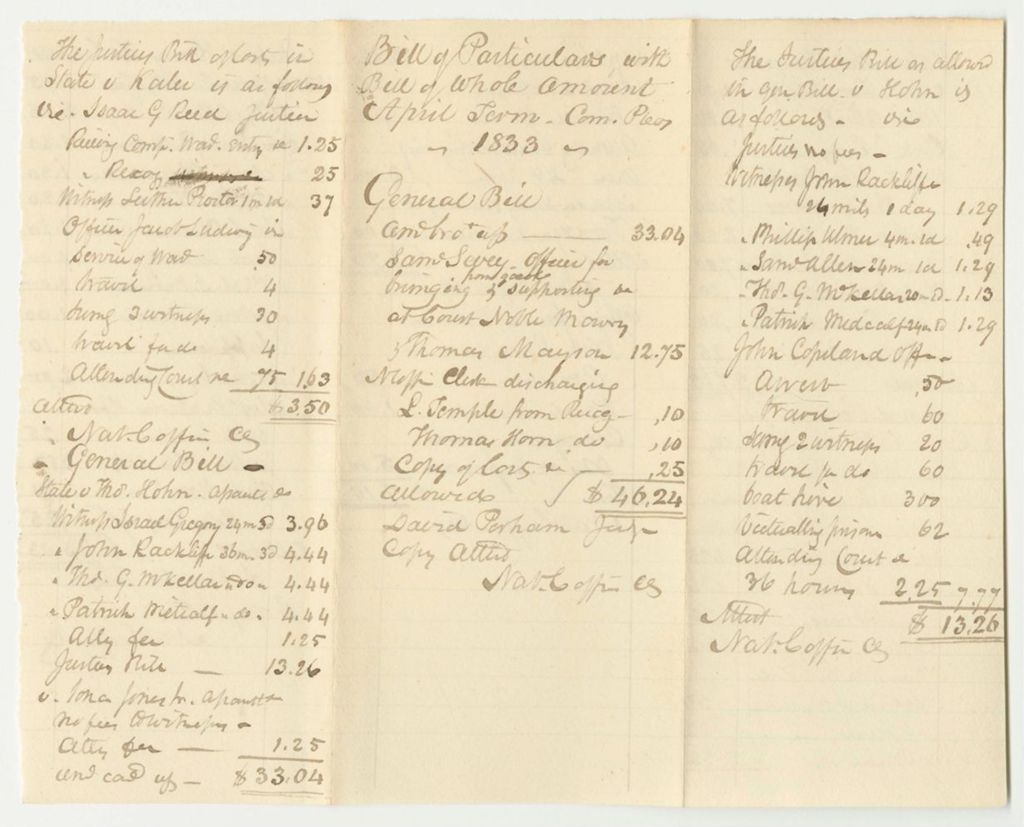 The Justices Bill of Costs in
State v Kaler is as follows
viz. Isaac G Reed Justice
Receiving Comp. War. Entry &c 1.25
" Recog 25
Witness Luther Proctor 1m 1d 37
Officer Jacob Ludwig in
Service of War .50
travil 4
sumg 3 witness 30
travil for do 4
Attending Court &c 75 1,63
Attest $3.50
Nat. Coffin Clk
- General Bill -
State v Tho. Hohn. apauls &c
Witness Israel Gregory 24m 5d 3.96
" John Racklife 36m. 3d 4.44
" Tho. G. McKellar do 4.44
" Patrick Metcalf do. 4.44
Atty fee 1.25
Justices Bill — 13.26
v. Jones Jr. apauls
no fees to witnesses -
Atty fee — 1.25
and card up — $33.04
Bill of Particulars with
Bill of Whole Amount
April Term - Com. Pleas
~ 1833 ~
General Bill
Am bro't up —— 33.04
Saml Sevey Officer for
from gaol
bringing & supporting &c
at Court Noble Mowry
& Thomas Mayson 12.75
Clerk discharging
L. Temple from Recog - ,10
Thomas Horn do ,10
Copy of Costs &c — ,25
Allowed $46,24
David Perham Judge
Copy Attest
Nat. Coffin Clk
The Justices Bill as allowed
in gen. Bill v Hohn is
as follows - viz
Justices no fees -
Witnesses John Rackliffe
24 mils 1 day 1.29
" Phillip Ulmer 4m. 1d .49
" Saml Allen 24m 1d 1.29
" Tho. G. McKellar 20m d. 1.13
" Patrick Medcalf 24m d 1.29
John Copeland Off -
Arrest ,50
travil 60
sumg 2 witness 20
travil for do 60
boat hire 300
Victualling prisoner 62
Attending Court &c
36 hours 2,25 7,77
Attest $13.26
Nat. Coffin Clk